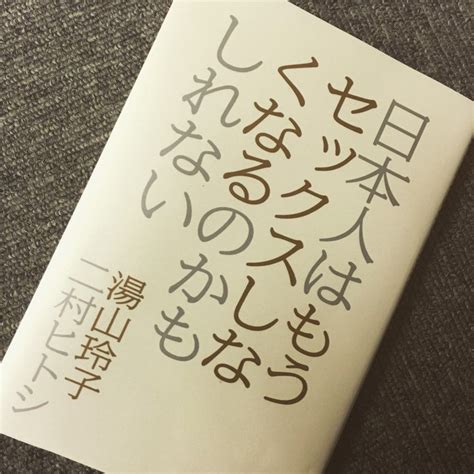 日本人はもう
セックスしな
くなるのかも
しれない
湯山玲子
二村ヒトシ